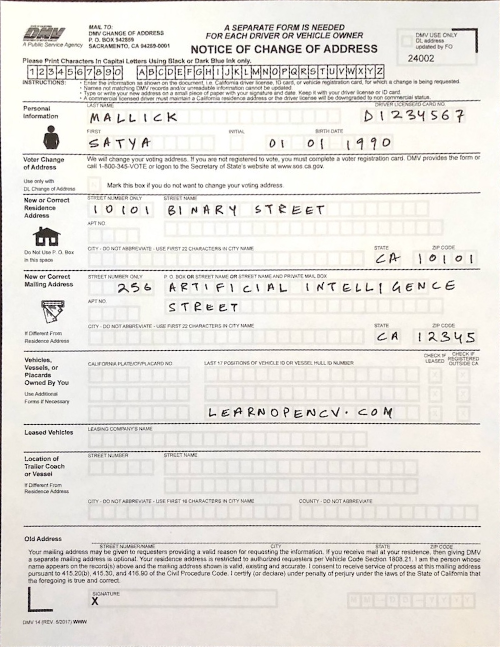 DMV
A Public Service Agency
MAIL TO:
DMV CHANGE OF ADDRESS
P. O. BOX 942859
SACRAMENTO, CA 94259-0001
A SEPARATE FORM IS NEEDED
FOR EACH DRIVER OR VEHICLE OWNER
NOTICE OF CHANGE OF ADDRESS
DMV USE ONLY
DL address
updated by FO
24002
Please Print Characters In Capital Letters Using Black or Dark Blue Ink only.
1 2 3 4 5 6 7 8 9 0 A B C D E F G H I J K L M N O P Q R S T U V W X Y Z
INSTRUCTIONS:
• Enter the information as shown on the document, i.e. California driver license, ID card, or vehicle registration card, for which a change is being requested.
• Names not matching DMV records and/or unreadable information cannot be updated.
• Type or write your new address on a small piece of paper with your signature and date. Keep it with your driver license or ID card.
• A commercial licensed driver must maintain a California residence address or the driver license will be downgraded to non commercial status.
Personal
Information
LAST NAME
DRIVER LICENSE/ID CARD NO.
MALLICK
D1234567
FIRST
INITIAL
BIRTH DATE
SATYA
01 01 1990
Voter Change
of Address
We will change your voting address. If you are not registered to vote, you must complete a voter registration card. DMV provides the form or
call 1-800-345-VOTE or logon to the Secretary of State's website at www.sos.ca.gov.
Use only with
DL Change of Address
Mark this box if you do not want to change your voting address.
New or Correct
Residence
Address
STREET NUMBER ONLY
STREET NAME
10101 BINARY STREET
APT NO.
Do Not Use P. O. Box
in this space
CITY - DO NOT ABBREVIATE - USE FIRST 22 CHARACTERS IN CITY NAME
STATE
ZIP CODE
CA 10101
New or Correct
Mailing Address
STREET NUMBER ONLY
P. O. BOX OR STREET NAME OR STREET NAME AND PRIVATE MAIL BOX
256 ARTIFICIAL INTELLIGENCE
APT NO.
STREET
If Different From
Residence Address
CITY - DO NOT ABBREVIATE - USE FIRST 22 CHARACTERS IN CITY NAME
STATE
ZIP CODE
CA 12345
Vehicles,
Vessels, or
Placards
Owned By You
CALIFORNIA PLATE/CF/PLACARD NO.
LAST 17 POSITIONS OF VEHICLE ID OR VESSEL HULL ID NUMBER
CHECK IF
LEASED
CHECK IF
REGISTERED
OUTSIDE CA
Use Additional
Forms if Necessary
LEARNOPENCV.COM
Leased Vehicles
LEASING COMPANY'S NAME
Location of
Trailer Coach
or Vessel
STREET NUMBER
STREET NAME
If Different From
Residence Address
CITY - DO NOT ABBREVIATE - USE FIRST 16 CHARACTERS IN CITY NAME
COUNTY - DO NOT ABBREVIATE
Old Address
STREET NUMBER/NAME
CITY
STATE
ZIP CODE
Your mailing address may be given to requesters providing a valid reason for requesting the information. If you receive mail at your residence, then giving DMV
a separate mailing address is optional. Your residence address is restricted to authorized requesters per Vehicle Code Section 1808.21. I am the person whose
name appears on the record(s) above and the mailing address shown is valid, existing and accurate. I consent to receive service of process at this mailing address
pursuant to 415.20(b), 415.30, and 416.90 of the Civil Procedure Code. I certify (or declare) under penalty of perjury under the laws of the State of California that
the foregoing is true and correct.
SIGNATURE
X
DMV 14 (REV. 5/2017) WWW